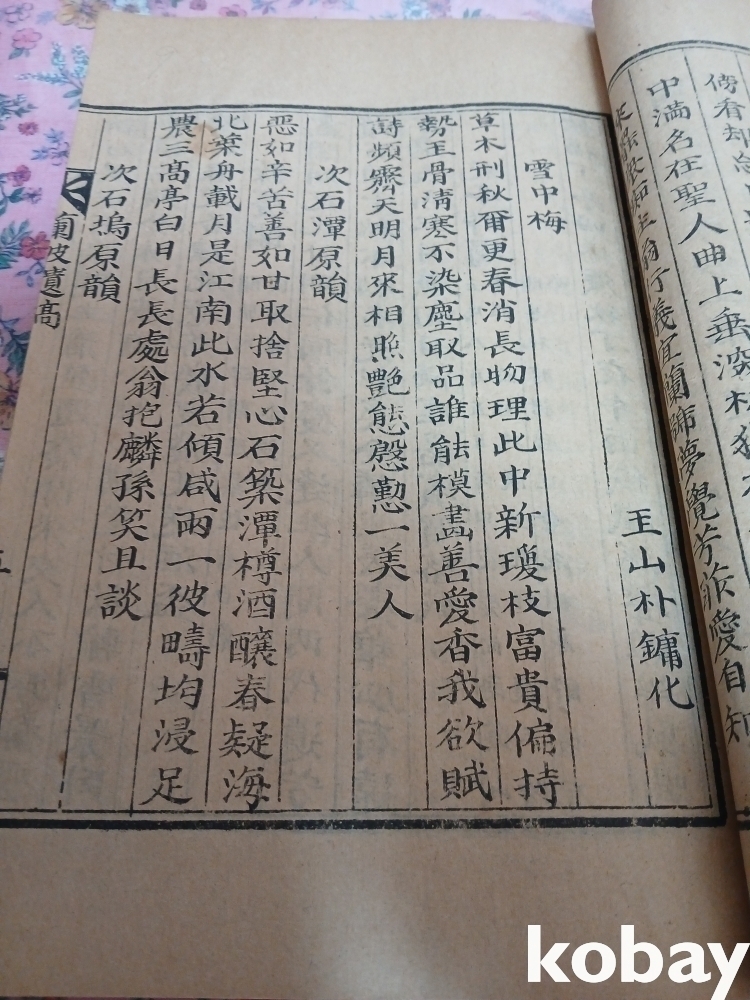 傍看却
中滿名在聖人曲上垂深
宜蘭歸夢覺芳菲愛自知
王山朴鏞化
雪中梅
草木刑秋爾更春消長物理此中新瓊枝富貴偏持
勢王骨淸寒不染塵取品誰能模畵善愛香我欲賦
詩頻齋天明月來相照艶態慇懃一美人
次石潭原韻
惡如辛苦善如甘取捨堅心石築潭樽酒釀春疑海
北葉舟載月是江南此水若傾咸兩一彼疇均浸足
農三高亭白日長長處翁抱麟孫笑且談
次石塢原韻
蘭坡遺稿
五
kobay